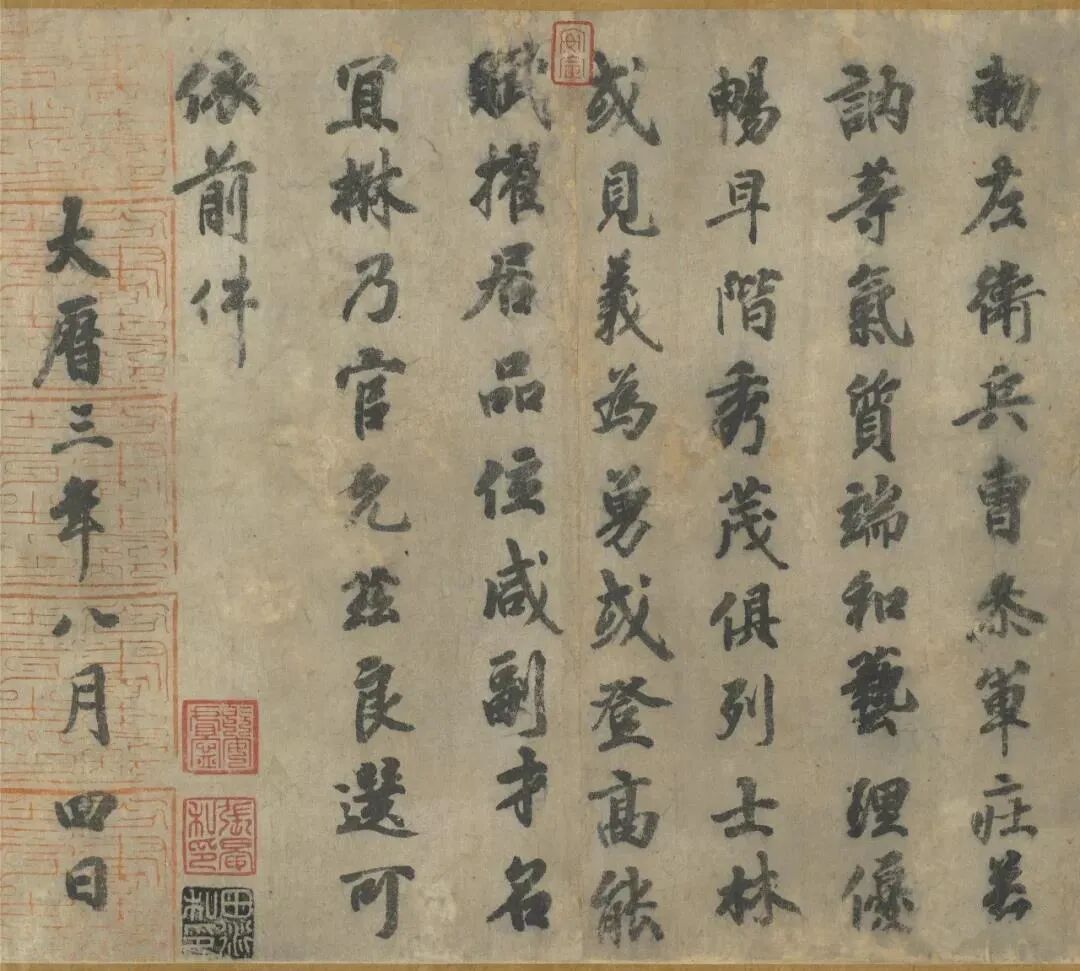 勅左衛兵曹叅軍庄若
訥等氣質端和藝理優
暢早階秀茂俱列士林
或見義為勇或登高能
賦擢居品位咸副才名
宜楙乃官允茲良選可
依前件
大曆三年八月四日
張晏私印